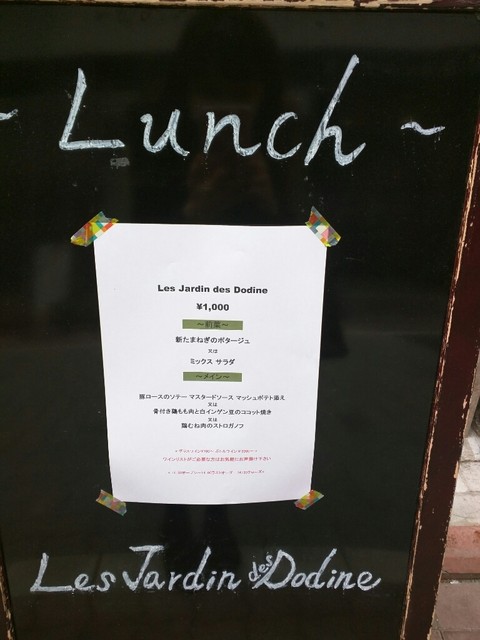 ~ Lunch ~
Les Jardin des Dodine
¥1,000
～前菜～
新たまねぎのポタージュ
又は
ミックス サラダ
～メイン～
豚ロースのソテー マスタードソース マッシュポテト添え
又は
骨付き鶏もも肉と白インゲン豆のココット焼き
又は
鶏むね肉のストロガノフ
ワインリストがご必要な方はお気軽にお声掛け下さい
Les Jardin des Dodine